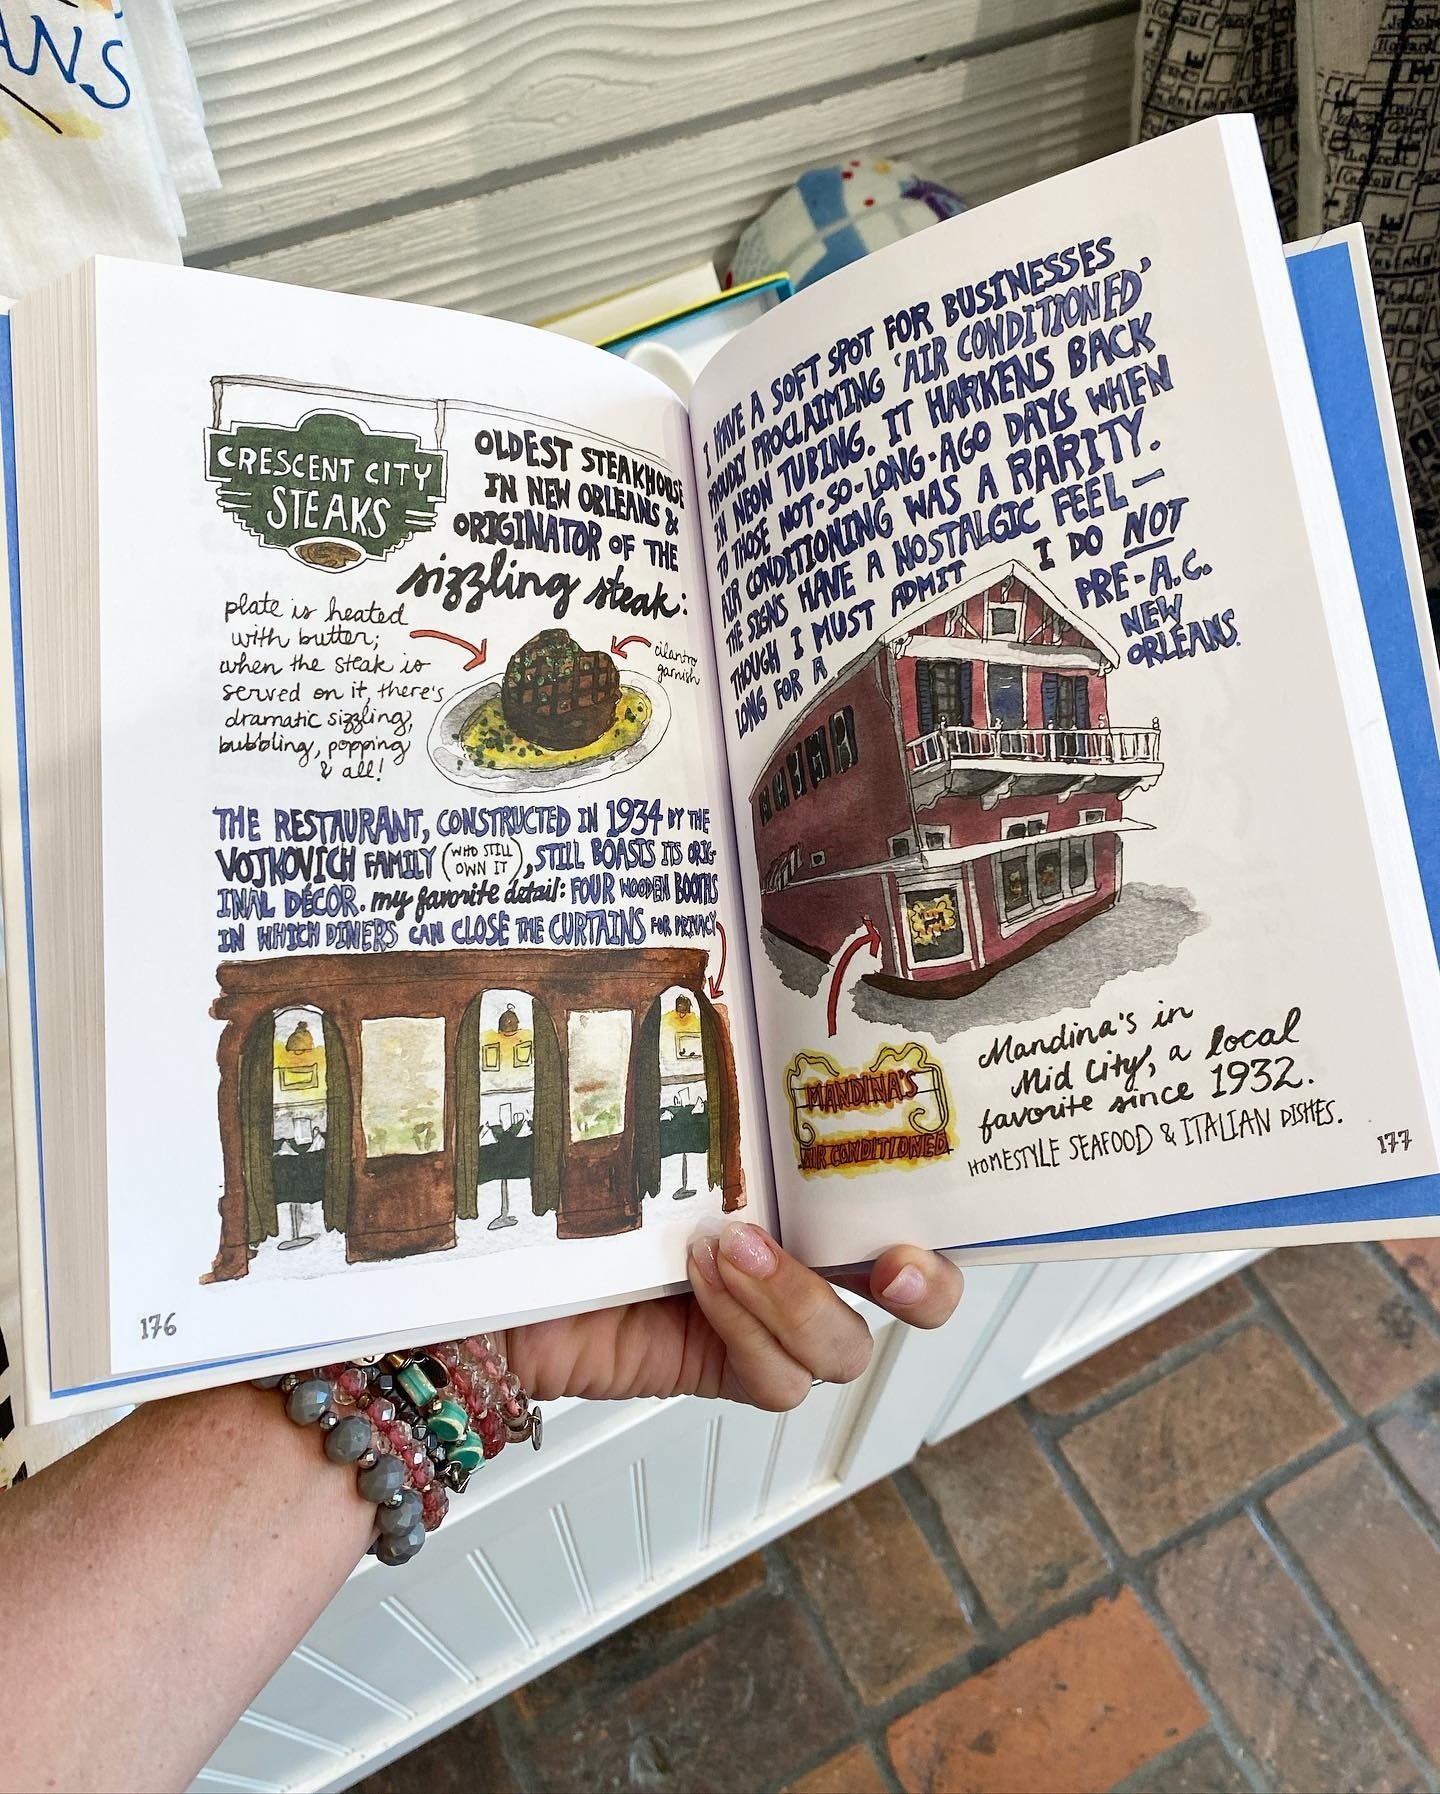 ANS
CRESCENT CITY
STEAKS
OLDEST STEAKHOUSE
IN NEW ORLEANS &
ORIGINATOR OF THE
sizzling steak:
plate is heated
with butter;
when the steak is
served on it, there's
dramatic sizzling,
bubbling, popping
& all!
cilantro
garnish
THE RESTAURANT, CONSTRUCTED IN 1934 BY THE
VOJKOVICH FAMILY (WHO STILL
OWN IT), STILL BOASTS ITS ORIG-
INAL DÉCOR. my favorite detail: FOUR WOODEN BOOTHS
IN WHICH DINERS CAN CLOSE THE CURTAINS FOR PRIVACY
176
I HAVE A SOFT SPOT FOR BUSINESSES
PROUDLY PROCLAIMING 'AIR CONDITIONED'
IN NEON TUBING. IT HARKENS BACK
TO THOSE NOT-SO-LONG-AGO DAYS WHEN
AIR CONDITIONING WAS A RARITY.
THE SIGNS HAVE A NOSTALGIC FEEL—
THOUGH I MUST ADMIT I DO NOT
LONG FOR A PRE-A.C.
NEW
ORLEANS.
MANDINA'S
AIR CONDITIONED
Mandina's in
Mid City, a local
favorite since 1932.
HOMESTYLE SEAFOOD & ITALIAN DISHES.
177